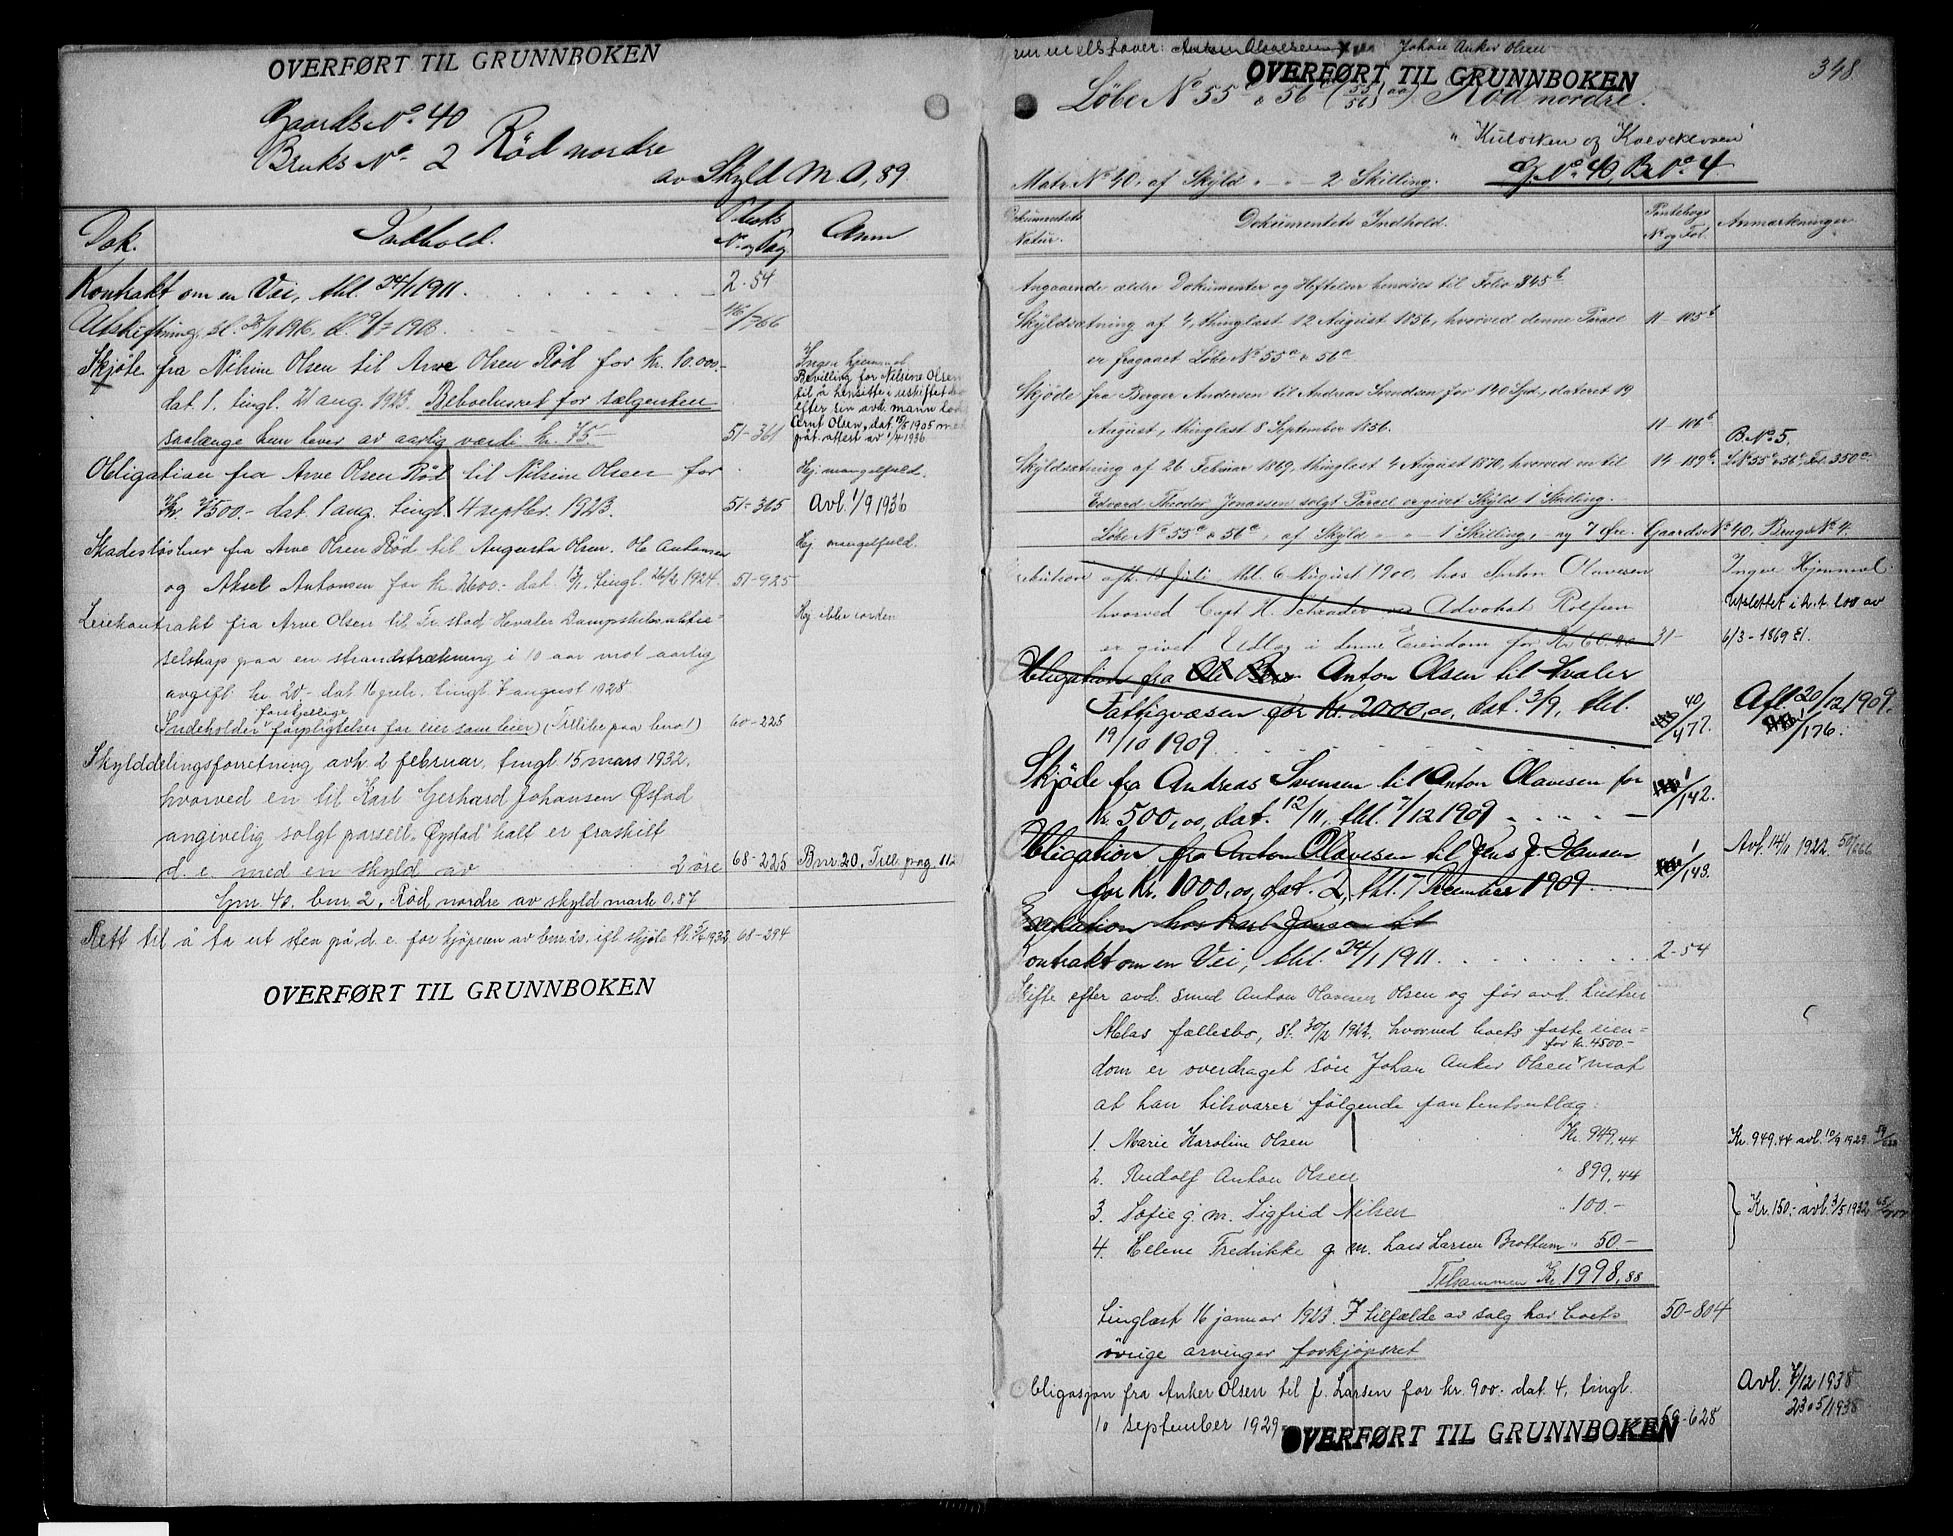 OVERFØRT TIL GRUNNBOKEN
Gaards No 40
Bruks No 2 Rød nordre
av Skyld M. 0,89.
Dok. Indhold. No og Pag Anm
Kontrakt om en Vei, thl. 24/1 1911. 2. 54
Utskiftning, sl. 1916, 1918. 46/766
Skjøte fra Nilsine Olsen til Arve Olsen Rød for kr. 10.000.-
dat. 1. tingl. 21 aug. 1923. Beboelsesret for sælgersken
saalænge hun lever av aarlig værdi kr. 75.- 51-361
Ingen hjemmel
Bevilling for Nilsine Olsen
til å hensitte i uskiftet bo
efter sin avd. mann
Arnt Olsen, dat. 1905 med
påt. attest av 1/4 1936
Obligation fra Arve Olsen Rød til Nilsine Olsen for Hj. mangelfuld.
Kr. 7500.- dat. 1 aug. tingl. 4 septbr. 1923. 51-365 Avl. 1/9 1936
Skadesløsbrev fra Arve Olsen Rød til Augusta Olsen, Antonsen Hj. mangelfuld.
og Aksel Antonsen for kr. 2600.- dat. tingl. 26/2 1924. 51-925
Leiekontrakt fra Arve Olsen til Fr.stad Hvaler Dampskibsaktie- Hj. ikke iorden
selskap paa en strandstrækning i 10 aar mot aarlig
avgift kr. 20.- dat. 16 tingl. 7 august 1928
forskjellige
Indeholder forpligtelser for eier som leier) 60-225
Skylddelingsforretning avh. 2 februar, tingl. 15 mars 1932.
hvorved en til Karl Gerhard Johansen Øsfad
angivelig solgt parsell „Øystad" kalt er fraskilt
d. e. med en skyld av 2 øre 68-225 Bnr 20, Till. pag. 112
Gnr. 40. bnr. 2, Rød nordre av skyld mark 0,87
Rett til å ta ut sten på d. e. for kjøperen av bnr. 20, ifl. skjøte 1932 68-294
OVERFØRT TIL GRUNNBOKEN
Anton Olavesen Johan Anker Olsen
OVERFØRT TIL GRUNNBOKEN 348.
Löbe No 55 & 56 Rød nordre.
Matr. No 40, af Skyld " - " - 2 Skilling. G. No. 40, B. No. 4
Dokumentets Natur. Dokumentets Indhold. Pantebogs No og Fol. Anmærkninger
Angaaende ældre Dokumenter og Heftelser henvises til Folio 345b
Skyldsætning af 4, thinglæst 12 August 1856, hvorved denne Parcel 11 105b
er fragaaet Löbe No 55a & 56a
Skjøde fra Berger Andersen til Andreas Svendsen for 140 Spd., dateret 19
August, thinglæst 8 September 1856. 11 106b
B No 5.
Skyldsætning af 26 Februar 1869, thinglæst 4 August 1870, hvorved en til 14 189b L No 55c & 56c, Fol. 350a
Edvard Theodor Jonassen solgt Parcel er givet Skyld 1 Skilling.
Löbe No 55a & 56a, af Skyld " - " - 1 Skilling, ny 7 Øre. Gaards No 40, Brugs No 4.
Exekution afh. 18 Juli thl. 6 August 1900, hos Anton Olavesen Ingen Hjemmel.
hvorved Capt. H. Schrader ved Advokat Rolfsen Utslettet i h. t. lov av
er givet Udlæg i denne Eiendom for Kr. 60.00 31- 6/3-1869
Obligation fra Anton Olsen til Hvaler
Fattigvæsen for Kr. 2000,00, dat. 3/9, thl. 40/477. Afl. 20/12 1909. /176.
19/10 1909
Skjøde fra Andreas Svensen til Anton Olavesen for
Kr. 500,00, dat. 12/11, thl. 7/12 1909 1/142.
Obligation fra Anton Olavesen til Jens J. Hansen Avl. 14/6 1922
for Kr. 1000,00, dat. 2, thl. 7 December 1909. 1/143.
Exekution hos Karl Jansen til
Kontrakt om en Vei, thl. 24/1 1911. 2-54
Skifte efter avd. smed Anton Olavesen Olsen og før avd. hustru
fællesbo, sl. 30/12 1922, hvorved boets faste eien-
for kr. 4500.-
dom er overdraget søn Johan Anker Olsen mot
at han tilsvarer følgende panteutlæg:
1. Marie Karoline Olsen Kr. 949,44 Kr. 949.44 avl. 10/9 1929
2. Rudolf Anton Olsen " 899,44
3. Sofie g. m. Sigfrid Nilsen " 100.- Kr. 150.- avl. 3/5 1932
4. Helene Fredrikke g. m. Lars Larsen Brottum " 50.-
Tilsammen Kr. 1998,88
tinglæst 16 januar 1923. I tilfælde av salg har boets 50-804
øvrige arvinger forkjøpsret
Obligasjon fra Anker Olsen til J. Larsen for kr. 900.- dat. 4. tingl. Avl. 7/12 1938
10 september 1929 59-628 2305/1938
OVERFØRT TIL GRUNNBOKEN